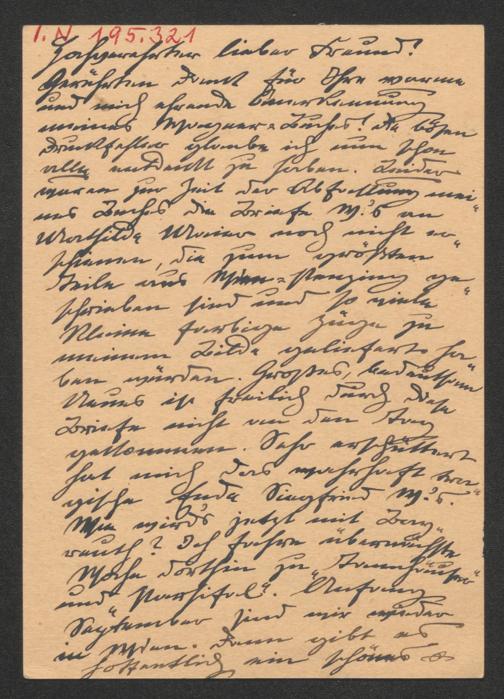 I.N 195.321
Hochverehrter lieber Freund!
Gerührten Dank für Ihre warme
und mich ehrende Anerkennung
meines Wagner-Buches! Die bösen
Druckfehler glaube ich nun schon
alle entdeckt zu haben. Leider
waren zur Zeit der Abfassung mei-
nes Buches die Briefe W.'s an
Mathilde Maier noch nicht er-
schienen, die zum größten
Teile aus Wien-Penzing ge-
schrieben sind und so viele
kleine farbige Züge zu
meinem Bilde geliefert ha-
ben würden. Großes, bedeutsam
Neues ist freilich durch diese
Briefe nicht an den Tag
gekommen. Sehr erschüttert
hat mich das wahrhaft tra-
gische Ende Siegfried W.'s.
Wie wird's jetzt mit Bay-
reuth? Ich fahre übernächste
Woche dorthin zu "Tannhäuser"
und "Parsifal". Anfang
September sind wir wieder
in Wien. Dann gibt es
hoffentlich ein schönes